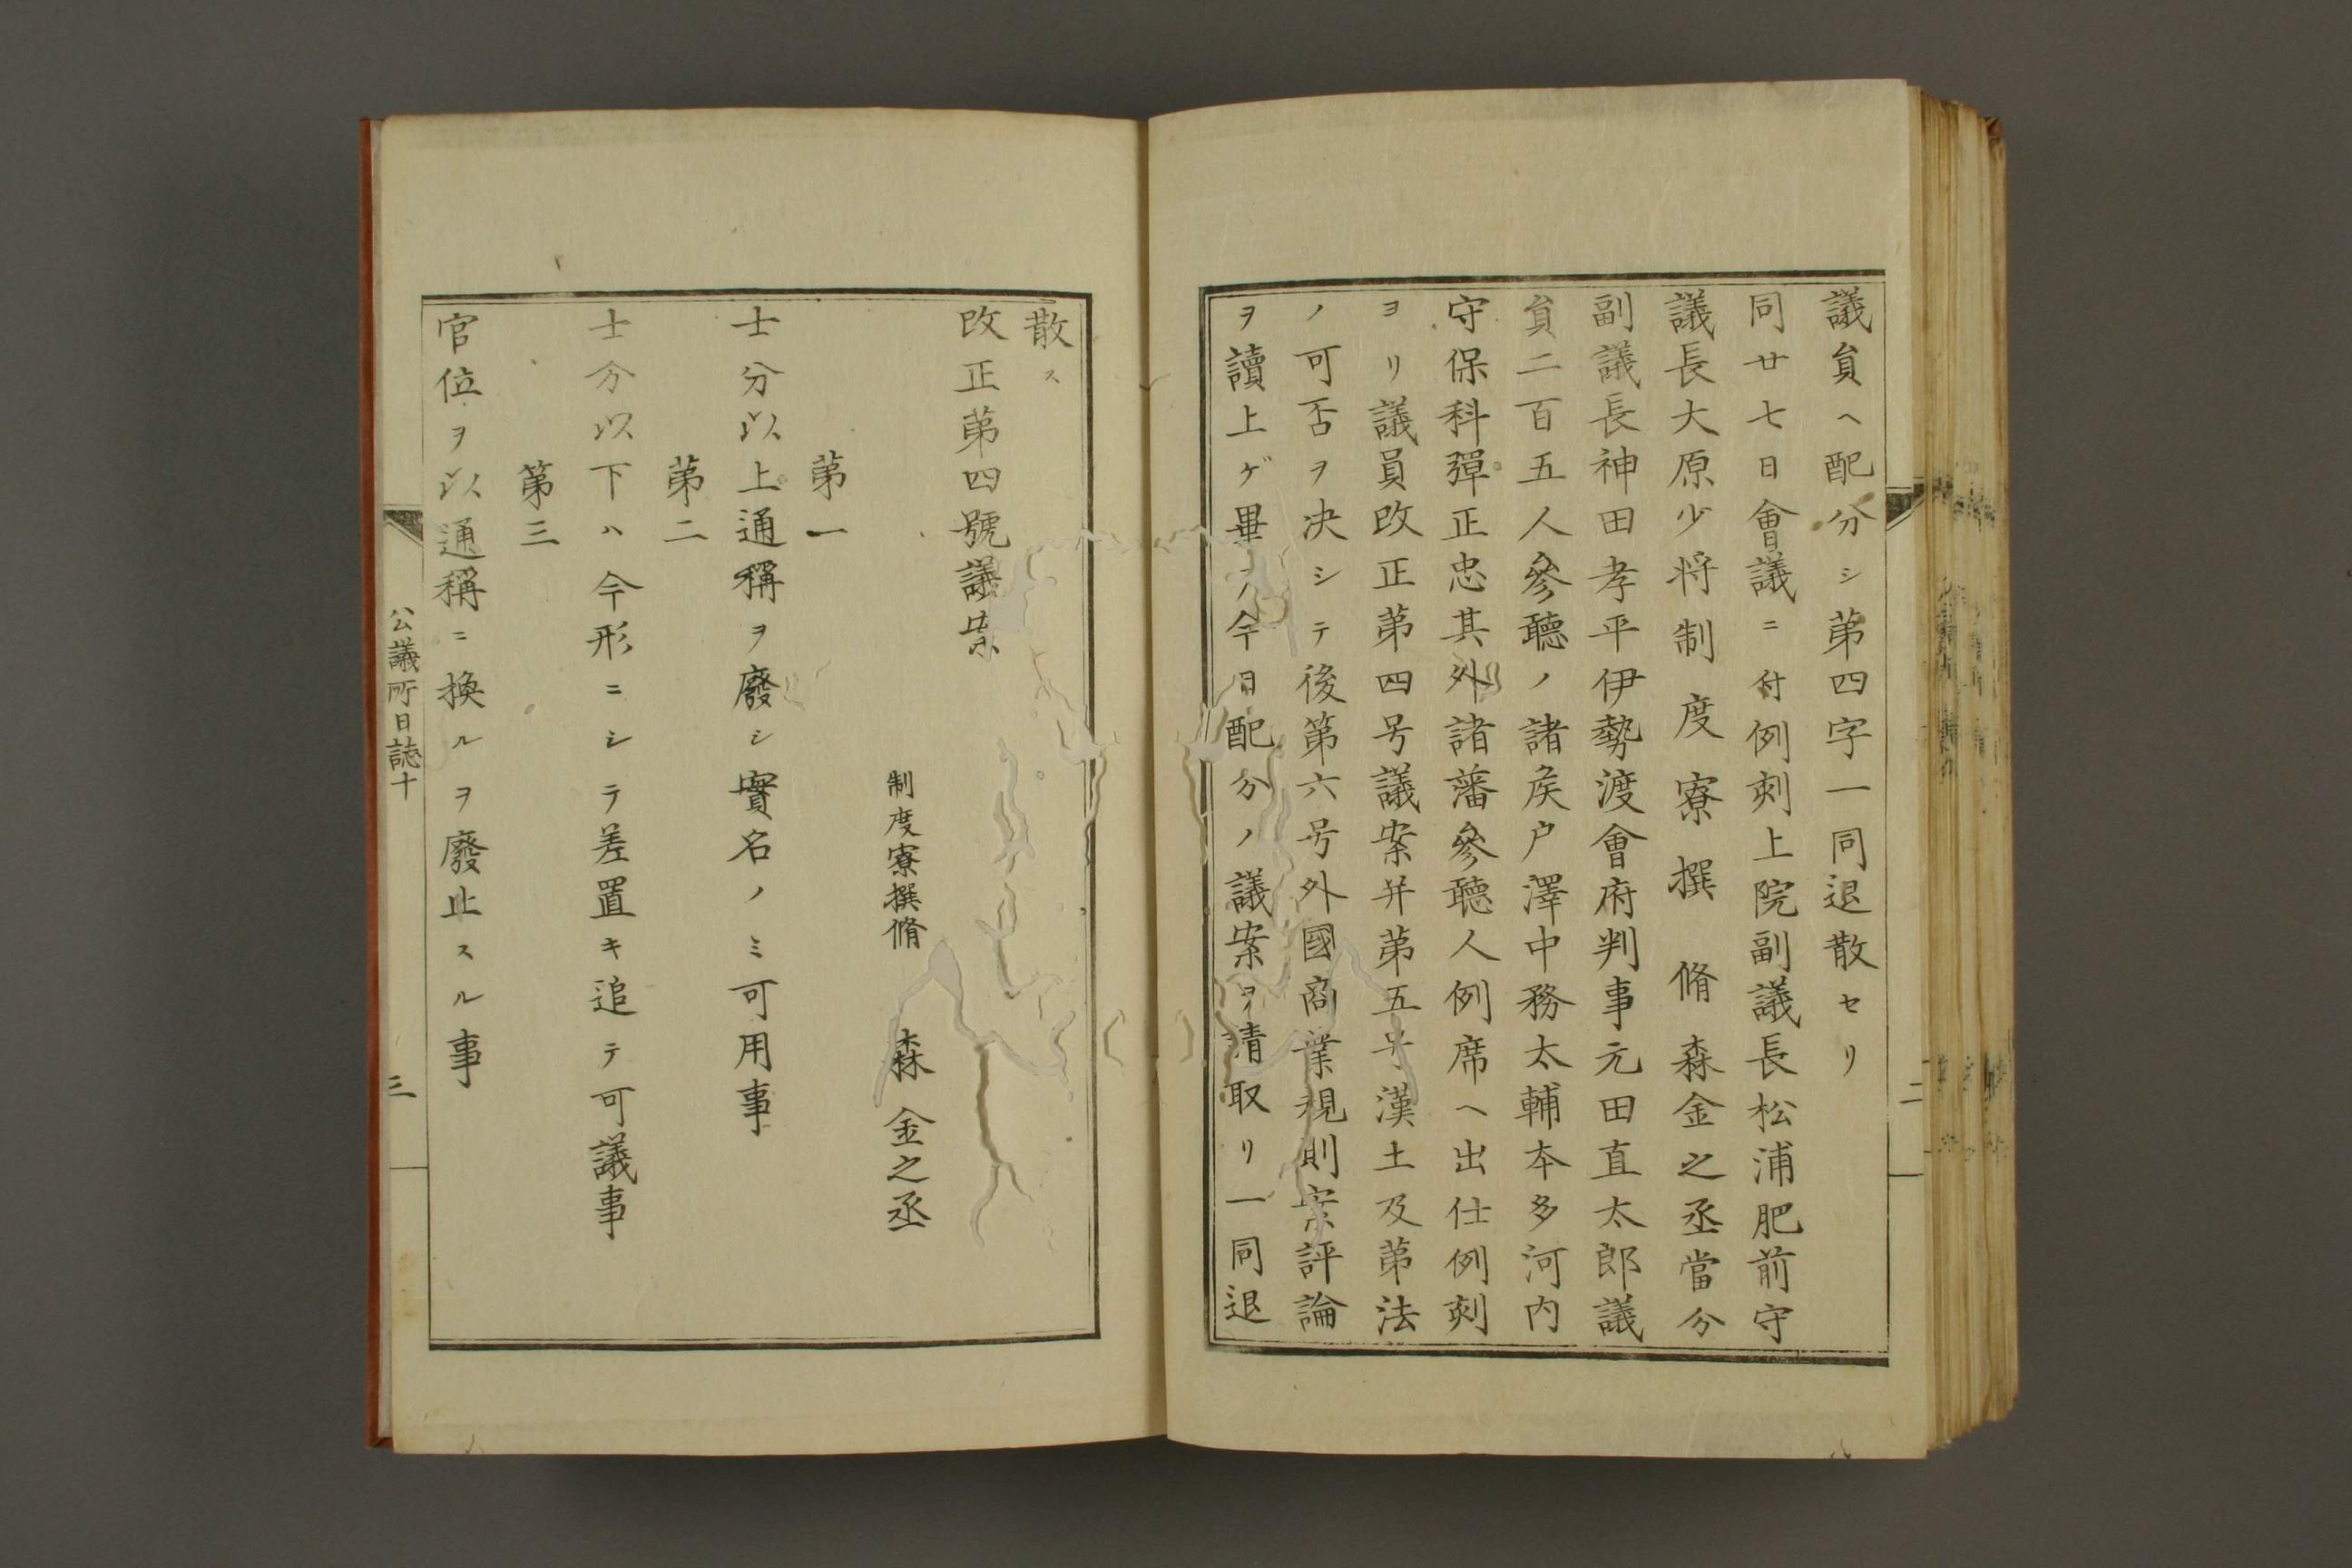 議員ヘ配分シ第四字一同退散セリ
同廿七日會議ニ付例刻上院副議長松浦肥前守
議長大原少将制度寮撰脩森金之丞當分
副議長神田孝平伊勢渡會府判事元田直太郎議
員二百五人參聽ノ諸矦户澤中務太輔本多河内
守保科彈正忠其外諸藩參聽人例席ヘ出仕例刻
ヨリ議員改正第四号議案并第五号漢土及第法
ノ可否ヲ决シテ後第六号外國商業規則案評論
ヲ讀上ゲ畢リ今日配分ノ議案ヲ請取リ一同退
二
散ス
改正第四號議案
制度寮撰脩 森金之丞
第一
士分以上通稱ヲ廢シ實名ノミ可用事
第二
士分以下ハ今形ニシテ差置キ追テ可議事
第三
官位ヲ以通稱ニ換ルヲ廢止スル事
公議所日誌十 三